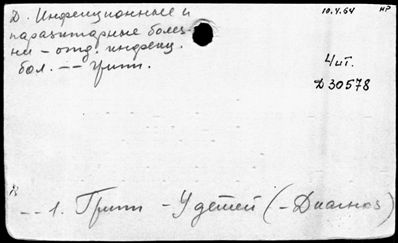 Д. Инфекционные и
паразитарные болез-
ни - отд. инфекц.
бол. -- Грипп.
10.4.64
НР
4 ит.
Д 30578
-- 1. Грипп - У детей (- Диагноз)